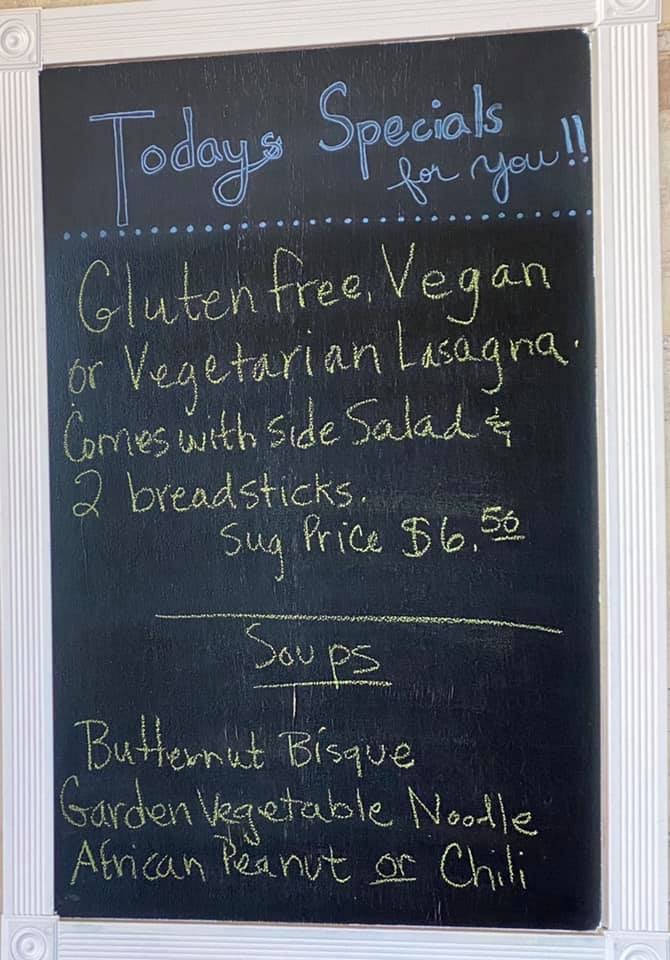 Todays Specials
for you!!
Gluten free, Vegan
or Vegetarian Lasagna.
Comes with side Salad &
2 breadsticks.
Sug Price $6.50
Soups
Butternut Bisque
Garden Vegetable Noodle
African Peanut or Chili